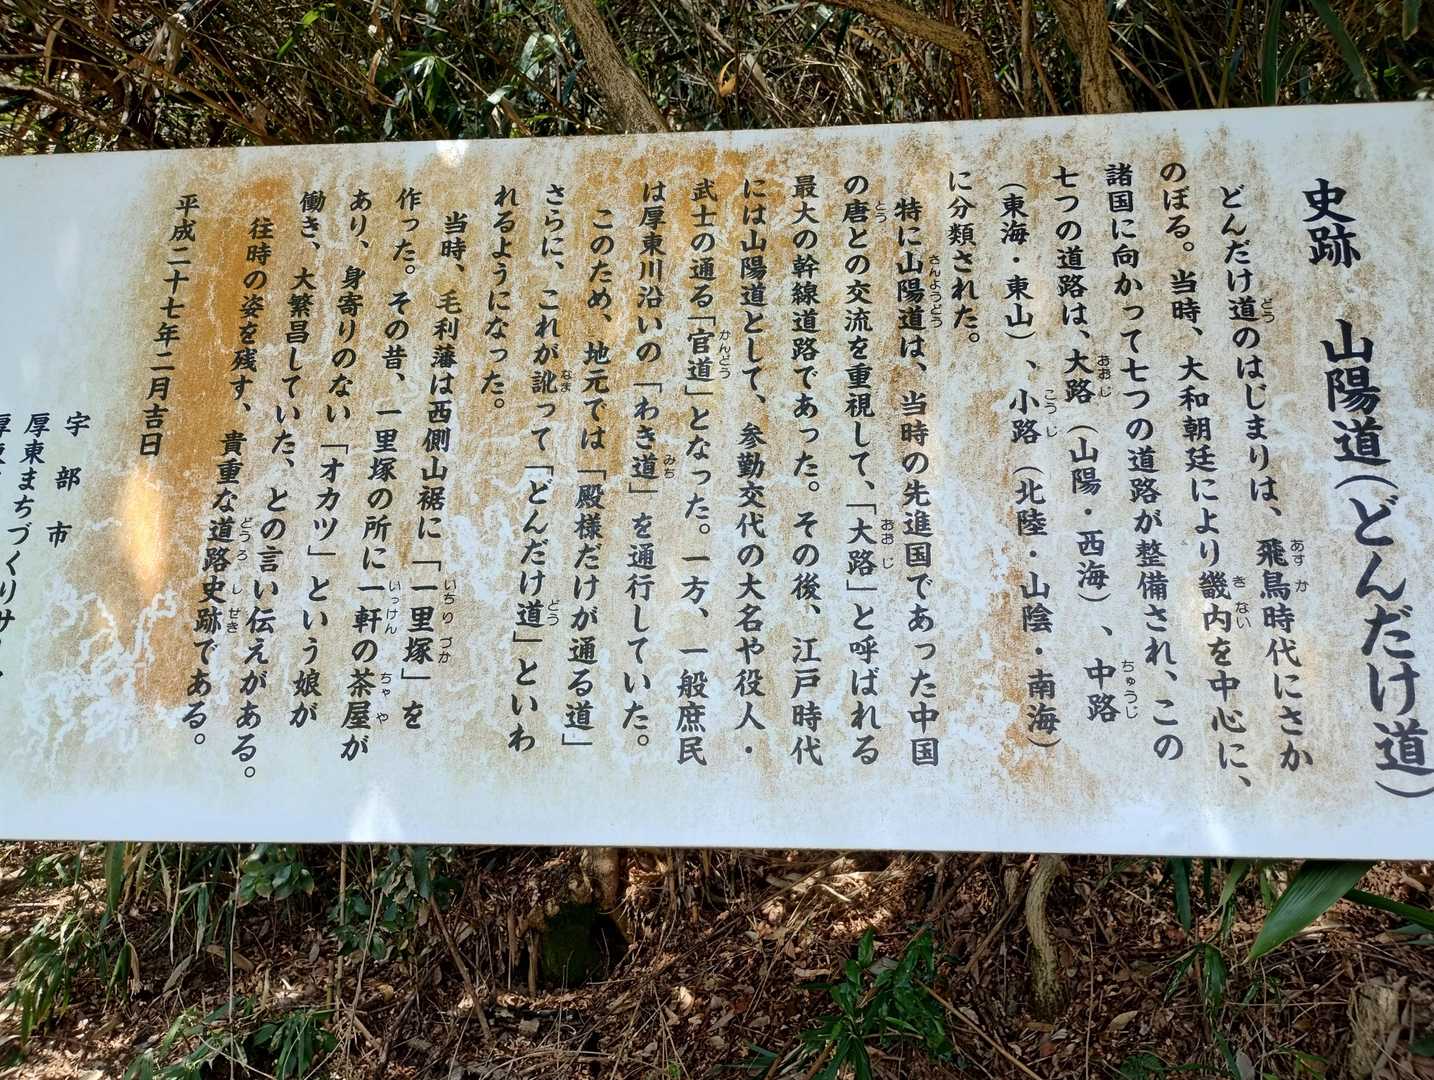 史跡　山陽道(どんだけ道)
どんだけ道のはじまりは、飛鳥時代にさか
のぼる。当時、大和朝廷により畿内を中心に、
諸国に向かって七つの道路が整備され、この
七つの道路は、大路(山陽・西海)、中路
(東海・東山)、小路(北陸・山陰・南海)
に分類された。
特に山陽道は、当時の先進国であった中国
の唐との交流を重視して、「大路」と呼ばれる
最大の幹線道路であった。その後、江戸時代
には山陽道として、参勤交代の大名や役人・
武士の通る「官道」となった。一方、一般庶民
は厚東川沿いの「わき道」を通行していた。
このため、地元では「殿様だけが通る道」
さらに、これが訛って「どんだけ道」といわ
れるようになった。
当時、毛利藩は西側山裾に「一里塚」を
作った。その昔、一里塚の所に一軒の茶屋が
あり、身寄りのない「オカツ」という娘が
働き、大繁昌していた、との言い伝えがある。
往時の姿を残す、貴重な道路史跡である。
平成二十七年二月吉日
宇部市
厚東まちづくりサ